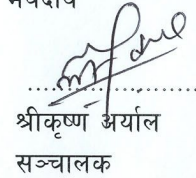 भवदीय
श्रीकृष्ण अर्याल
सञ्चालक